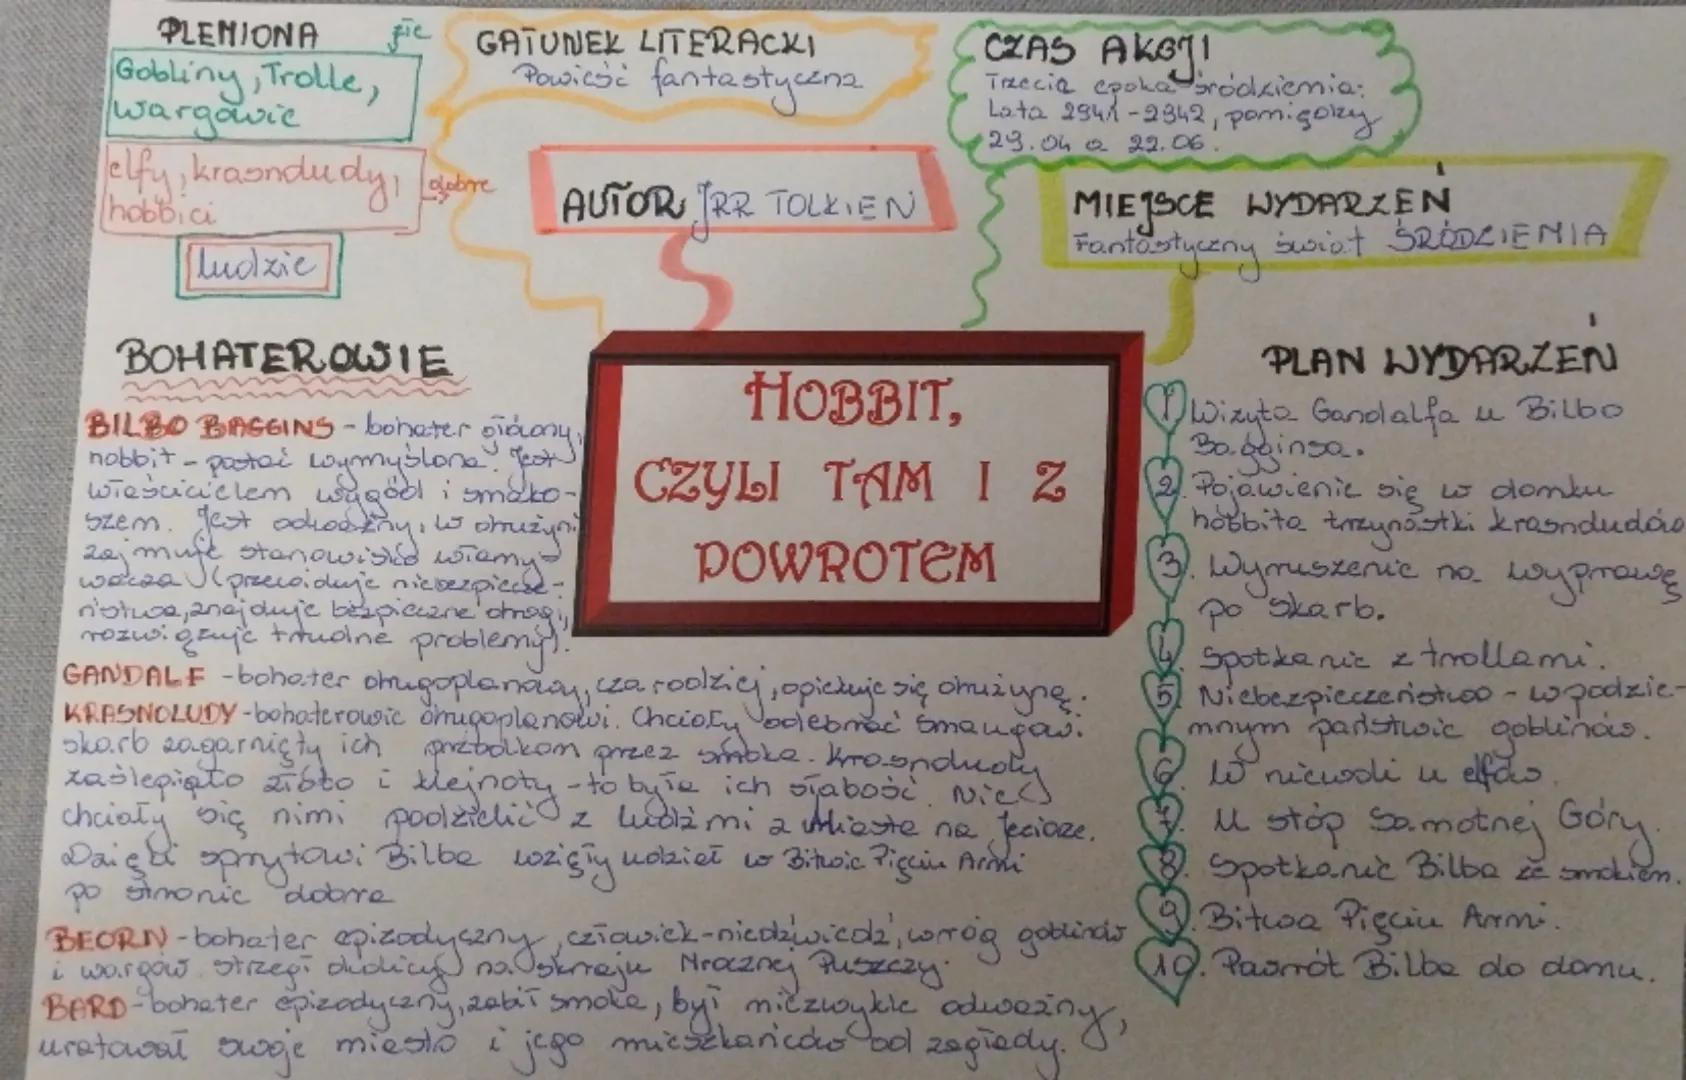 PLEMIONA
złe
Gobliny, Trolle,
wargowie
elfy, krasnoludy,
hobbici
dobre
ludzie
GATUNEK LITERACKI
Powieść fantastyczna
AUTOR JRR TOLKIEN
CZAS AKCJI
Trzecia epoka śródziemia:
Lata 2941-2942, pomiędzy
29.04 a 22.06.
MIEJSCE WYDARZEŃ
Fantastyczny świat ŚRÓDZIEMIA
HOBBIT,
CZYLI TAM I Z
POWROTEM
BOHATEROWIE
BILBO BAGGINS - bohater główny,
hobbit - postać wymyślona. Jest
właścicielem wygód i smako-
szem. Jest odważny, w drużyni
zajmuje stanowisko włamy-
wacza (przewiduje niebezpiecze-
ństwa, znajduje bezpieczne drogi,
rozwiązuje trudne problemy).
GANDALF - bohater drugoplanowy, czarodziej, opiekuje się drużyną.
KRASNOLUDY - bohaterowie drugoplanowi. Chciały odebrać Smaugowi
skarb zagarnięty ich przodkom przez smoka. Krasnoludy
zaślepiało złoto i klejnoty - to była ich słabość. Nie
chciały się nimi podzielić z ludźmi z Miasta na Jeziorze.
Dzięki sprytowi Bilba wzięły udział w Bitwie Pięciu Armi
po stronie dobra
BEORN - bohater epizodyczny, człowiek-niedźwiedź, wróg goblinów
i wargów. Strzegł okolicy na skraju Mrocznej Puszczy.
BARD - bohater epizodyczny, zabił smoka, był niezwykle odważny,
uratował swoje miasto i jego mieszkańców od zagłady.
PLAN WYDARZEŃ
1. Wizyta Gandalfa u Bilbo
Bagginsa.
2. Pojawienie się w domku
hobbita trzynastki krasnoludów
3. Wyruszenie na wyprawę
po skarb.
4. Spotkanie z trollami.
5. Niebezpieczeństwo - w podzie-
mnym państwie goblinów.
6. W niewoli u elfów.
7. U stóp Samotnej Góry.
8. Spotkanie Bilba ze smokiem.
9. Bitwa Pięciu Armi.
10. Powrót Bilba do domu.